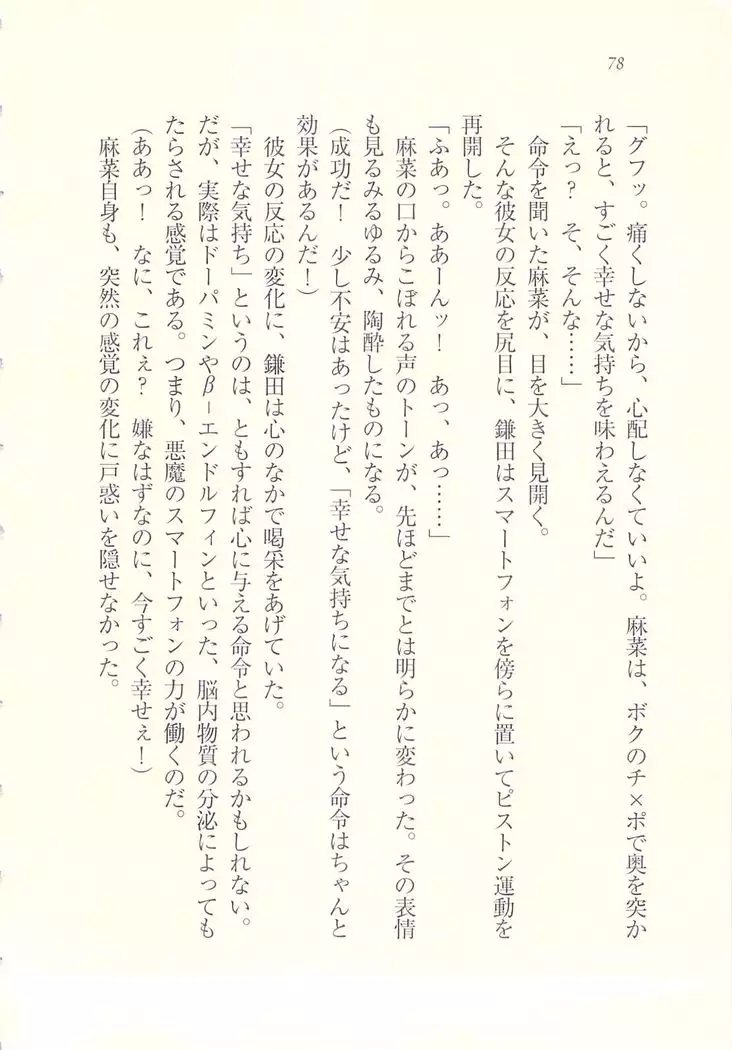 78
「グフッ。痛くしないから、心配しなくていいよ。麻菜は、ボクのチ×ポで奥を突か
れると、すごく幸せな気持ちを味わえるんだ」
「えっ？　そ、そんな……」
　命令を聞いた麻菜が、目を大きく見開く。
　そんな彼女の反応を尻目に、鎌田はスマートフォンを傍らに置いてピストン運動を
再開した。
「ふあっ。ああーんッ！　あっ、あっ……」
　麻菜の口からこぼれる声のトーンが、先ほどまでとは明らかに変わった。その表情
も見るみるゆるみ、陶酔したものになる。
（成功だ！　少し不安はあったけど、「幸せな気持ちになる」という命令はちゃんと
効果があるんだ！）
　彼女の反応の変化に、鎌田は心のなかで喝采をあげていた。
「幸せな気持ち」というのは、ともすれば心に与える命令と思われるかもしれない。
だが、実際はドーパミンやβ－エンドルフィンといった、脳内物質の分泌によっても
たらされる感覚である。つまり、悪魔のスマートフォンの力が働くのだ。
（ああっ！　なに、これぇ？　嫌なはずなのに、今すごく幸せぇ！）
　麻菜自身も、突然の感覚の変化に戸惑いを隠せなかった。